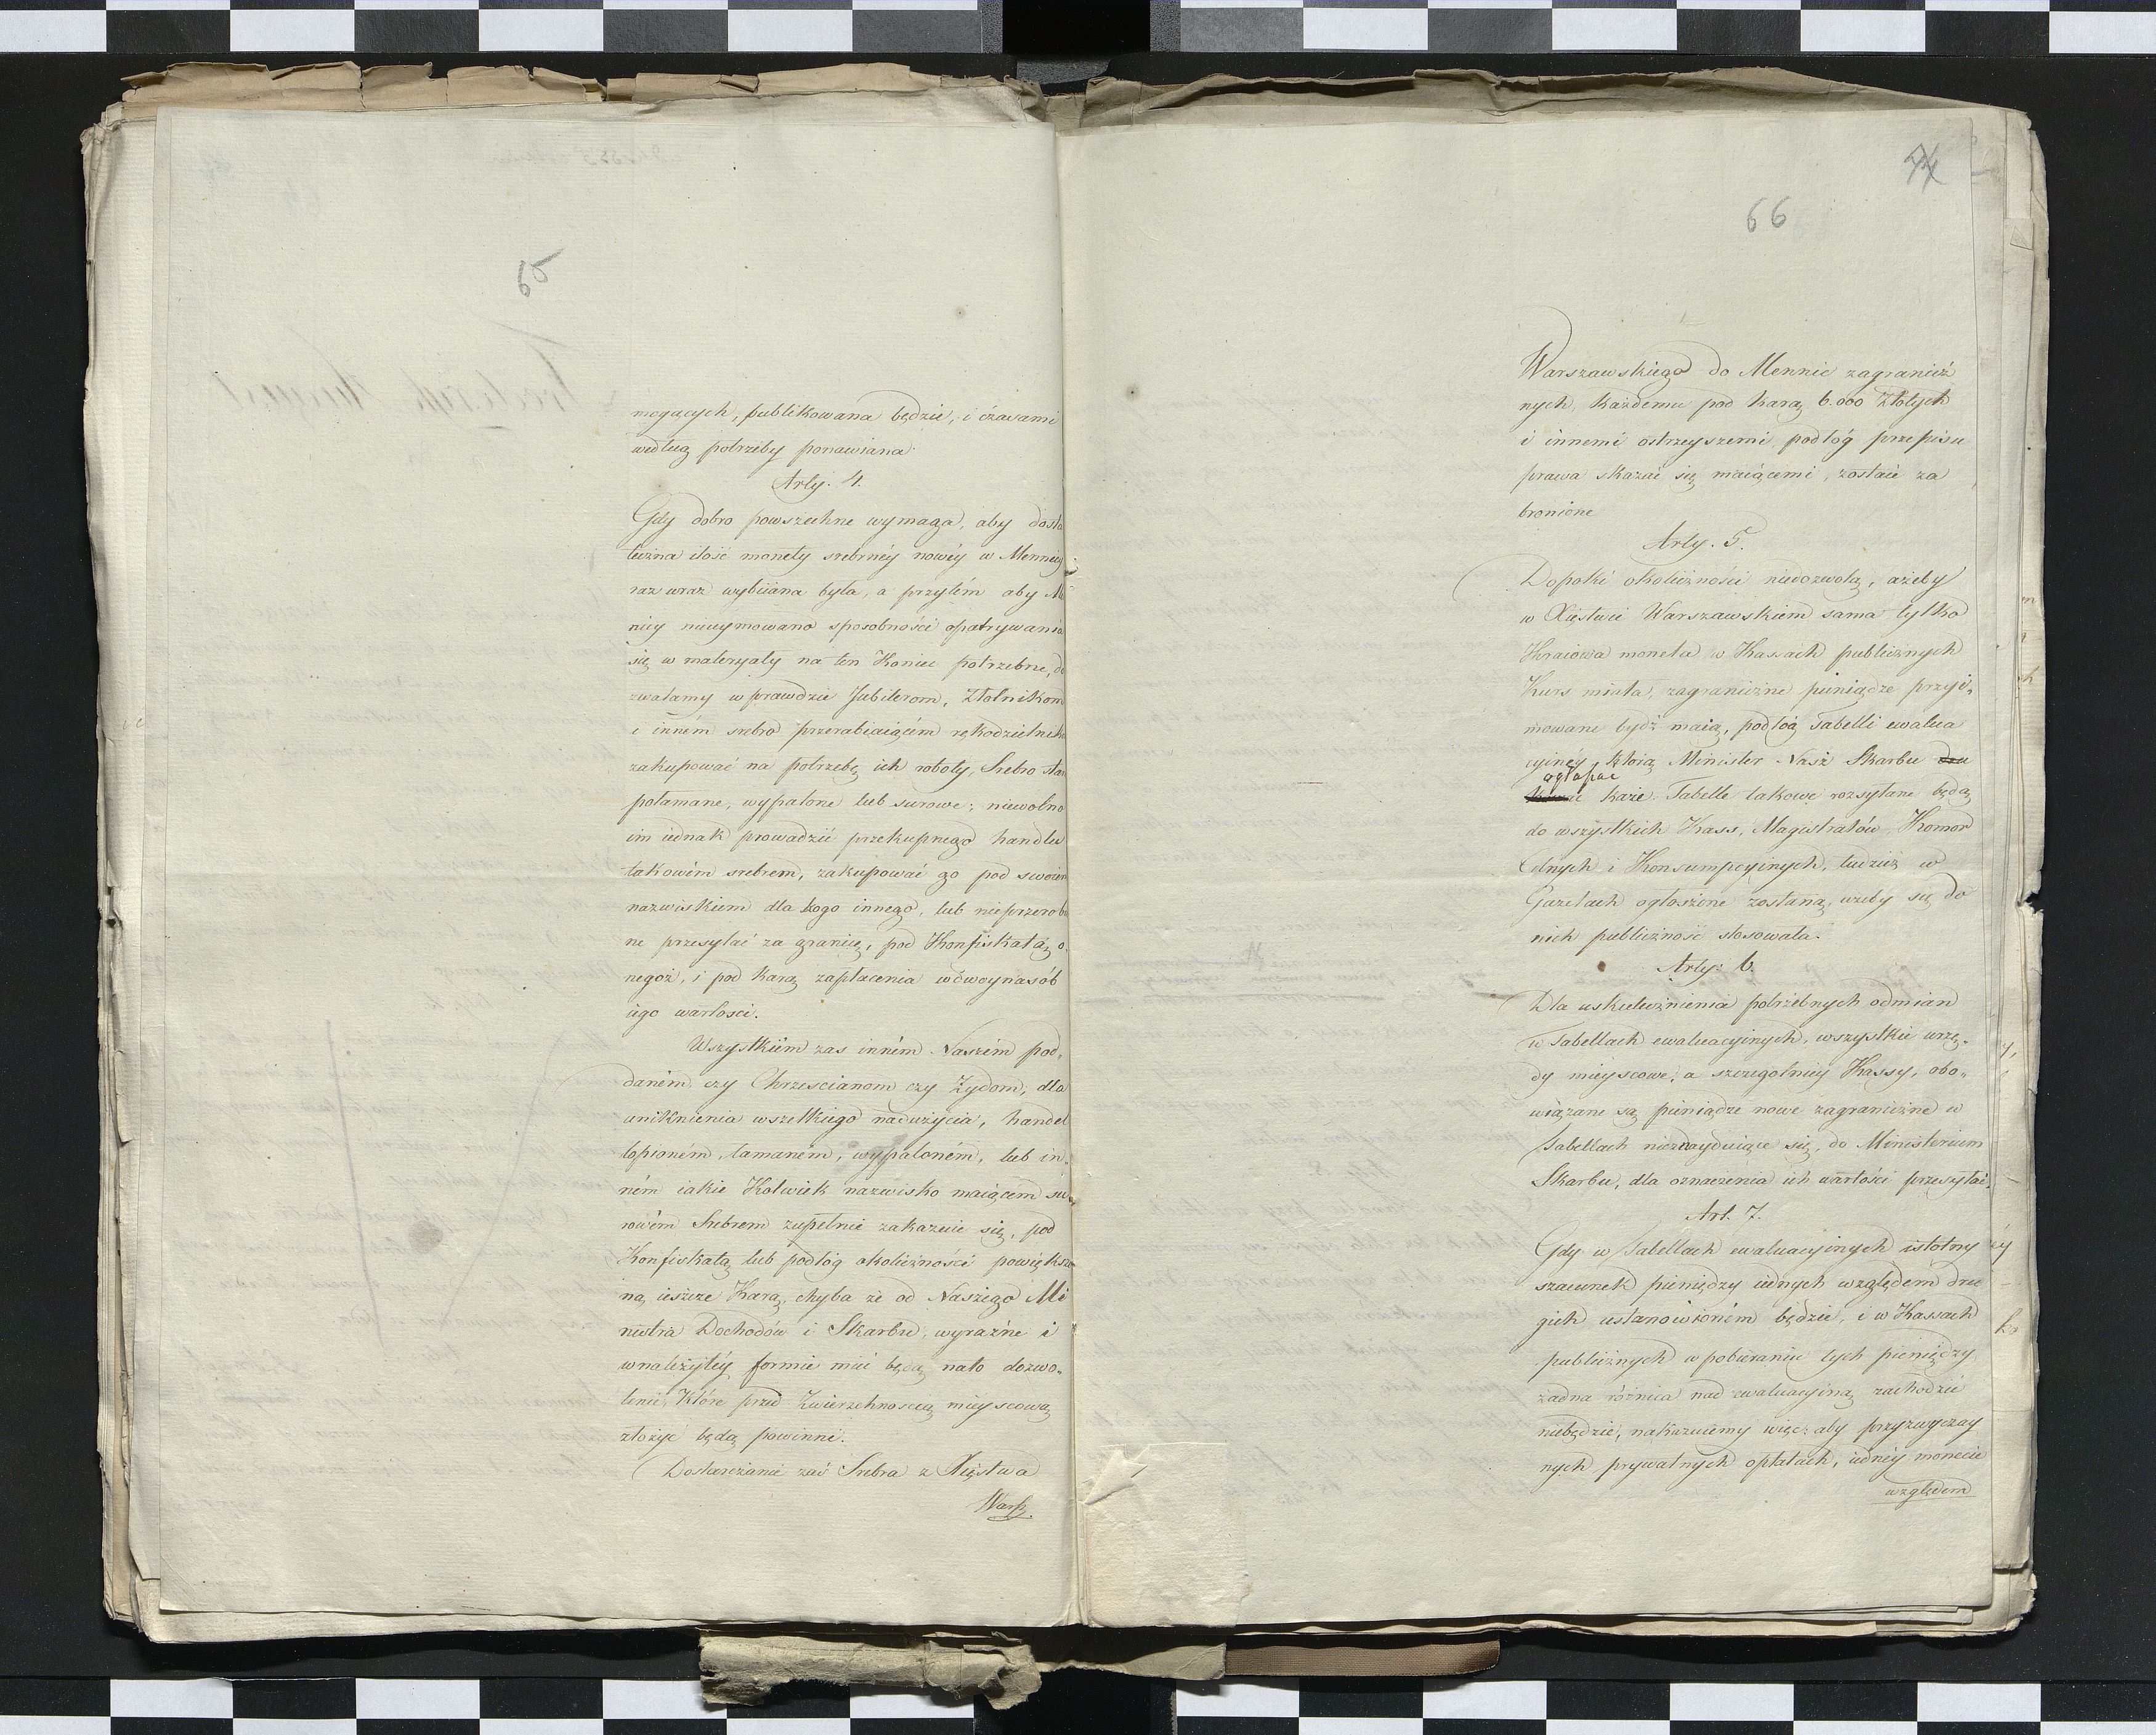 65
mogących, publikowana będzie, i czasami
według potrzeby ponawiana.
Arty. 4.
Gdy dobro powszechne wymaga, aby dosta
teczna ilość monety srebrnéy nowéy w Mennicy
raz wraz wybiiana była, a przytém aby Me
nicy nieuymowano sposobności opatrywania
się w materyały na ten Koniec potrzebne, do
zwalamy wprawdzie Jubilerom, Złotnikom
i inném srebro przerabiaiącém rękodzielnik
zakupować na potrzebę ich roboty, Srebro star
połamane, wypalone lub surowe; niewolno
im iednak prowadzić przekupnego handlu
takowém srebrem, zakupować go pod swoiem
nazwiskiem dla kogo innego, lub nieprzerobio
ne przesyłać za granicę, pod Konfiskatą o.
negoż, i pod karą zapłacenia wdwoynasób
iego wartosci.
Wszystkiém zas inném Naszém pod„
daném czy Chrzescianom czy Żydom, dla
uniknienia wszelkiego nadużycia, handel
topioném, łamaném, wypaloném, lub in„
ném iakie Kolwiek nazwisko maiącem su„
rowém Srebrem zupełnie zakazuie się, pod
Konfiskatą lub podłóg okoliczności powiększo
ną ieszcze Karą, chyba że od Naszego Mi
nistra Dochodów i Skarbu, wyraźne i
wnależytéy formie mieć będą nato dozwo„
lenie, Które przed Zwierzchnoscią mieyscową
złożyć będą powinni.
Dostarczanie zaś Srebra z Xięstwa
Warsz.
66
Warszawskiego do Mennic zagranicz
nych, każdemu pod karą 6.000 Złotych
i innemi ostrzeyszemi podłóg przepisu
prawa skazać się maiącemi, zostaie za
bronione
Arty. 5.
Dopoki okoliczności niedozwolą, ażeby
w Xięstwie Warszawskiem sama tylko
Kraiowa moneta w Kassach publicznych
Kurs miała, zagraniczne pieniądze przyi„
mowane bydź maią, podłóg Tabelli ewalua
cyinéy którą Minister Nasz Skarbu dru
ogłosić
kować każe. Tabelle takowe rozsyłane będą
do wszystkich Kass, Magistratów, Komor
Celnych i Konsumpcyinych, tudzież w
Gazetach ogłoszone zostaną, ażeby się do
nich publiczność stosowała.
Arty. 6.
Dla uskutecznienia potrzebnych odmian
w Tabellach ewaluacyinych, wszystkie urzę„
dy mieyscowe, a szczegolniey Kassy, obo„
wiązane są pieniądze nowe zagraniczne w
Tabellach nieznayduiące się, do Ministerium
Skarbu, dla oznaczenia ich wartości przesyłać.
Art. 7.
Gdy w Tabellach ewaluacyinych istotny
szacunek pieniędzy iednych względem dru
gich ustanowioném będzie, i w Kassach
publicznych wpobieraniu tych pieniędzy
żadna różnica nad ewaluacyiną zachodzić
niebędzie, nakazuiemy więc aby przyzwyczay
nych prywatnych opłatach, iednéy monecie
względem